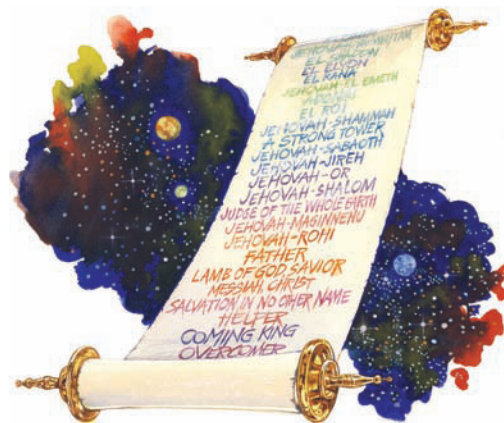 EL ELYON
EL KANA
JEHOVAH-EL EMETH
EL ROI
JEHOVAH-SHAMMAH
A STRONG TOWER
JEHOVAH-SABAOTH
JEHOVAH-JIREH
JEHOVAH-OR
JEHOVAH-SHALOM
JUDGE OF THE WHOLE EARTH
JEHOVAH-MAGINNENU
JEHOVAH-ROHI
FATHER
LAMB OF GOD, SAVIOR
MESSIAH, CHRIST
SALVATION IN NO OTHER NAME
HELPER
COMING KING
OVERCOMER